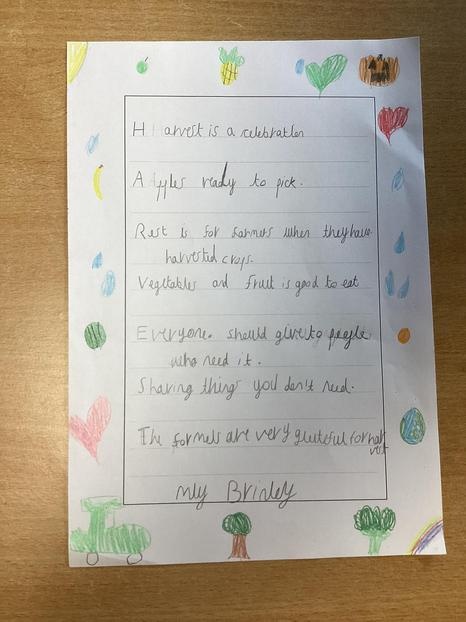 H Harvest is a celebration
A Apples ready to pick.
Rest is for farmers when they have
harvested crops.
Vegetables and fruit is good to eat
Everyone. should give to people
who need it.
Sharing things you don't need.
The formers are very grateful for har
vest
mly Brinley